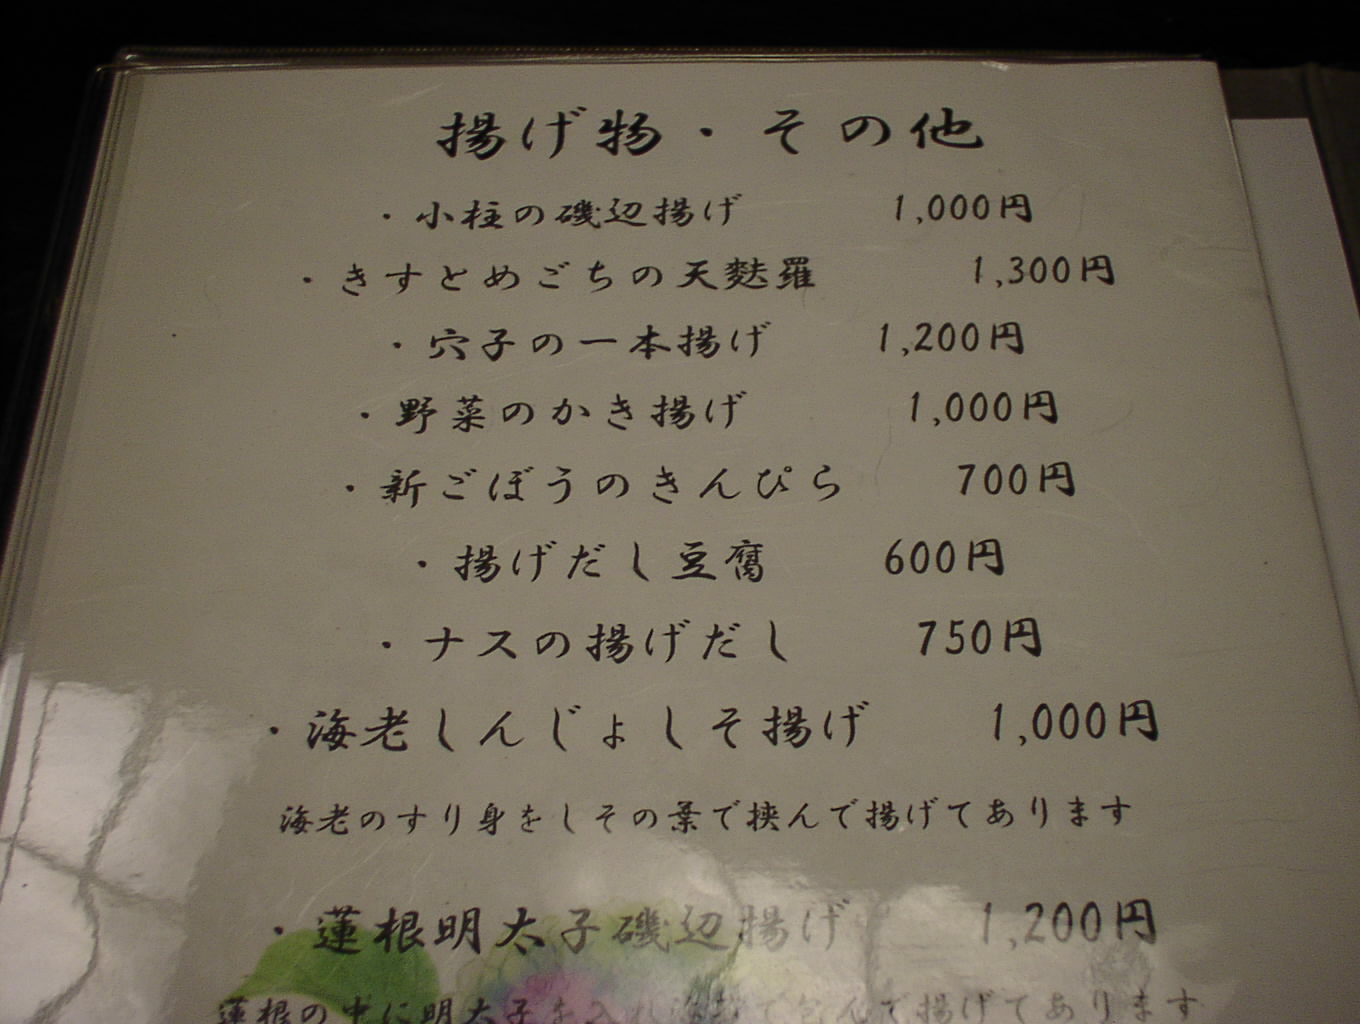 揚げ物・その他
・小柱の磯辺揚げ 1,000円
・きすとめごちの天麩羅 1,300円
・穴子の一本揚げ 1,200円
・野菜のかき揚げ 1,000円
・新ごぼうのきんぴら 700円
・揚げだし豆腐 600円
・ナスの揚げだし 750円
・海老しんじょしそ揚げ 1,000円
海老のすり身をしその葉で挟んで揚げてあります
・蓮根明太子磯辺揚げ 1,200円
蓮根の中に明太子を入れ海苔で包んで揚げてあります